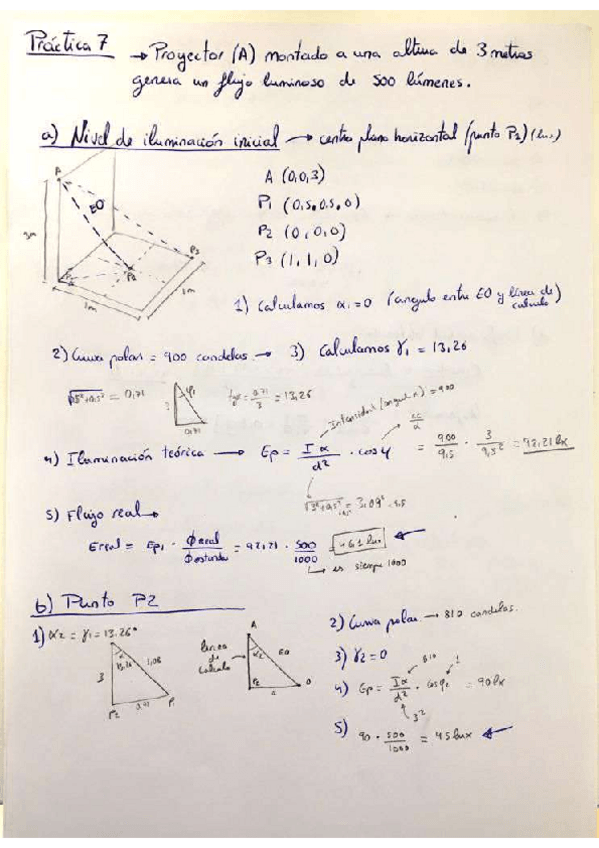 Práctica 7 → Proyector (A) montado a una altura de 3 metros
genera un flujo luminoso de 500 lúmenes.
a) Nivel de iluminación inicial → centro plano horizontal (punto P2) (lux)
A (0,0,3)
P1 (0,5,0,5,0)
P2 (0,0,0)
P3 (1,1,0)
A
EO
3m
P2
P3
1m
1m
1) Calculamos α1=0 (ángulo entre EO y línea de cálculo)
2) Curva polar = 900 candelas → 3) Calculamos γ1 = 13,26
= 0,71
3
0,71
φ1
= 0,71/3 = 13,26
Intensidad (ángulo α) = 900
4) Iluminación teórica → Ep = Iα/d² · cos φ = 900/9,5 · = 92,21 lx
5) Flujo real →
Ereal = Ep1 · Φreal/Φestándar = 92,21 · 500/1000 = 46,1 lux
es siempre 1000
b) Punto P2
1) α2 = γ1 = 13.26°
3
P2
0,71
P1
línea de cálculo
A
α2
EO
P2
O
2) Curva polar → 810 candelas.
3) γ2=0
810
1
4) Ep = Iα/d² · cos φ2 = 90 lx
3²
5) 90 · 500/1000 = 45 lux